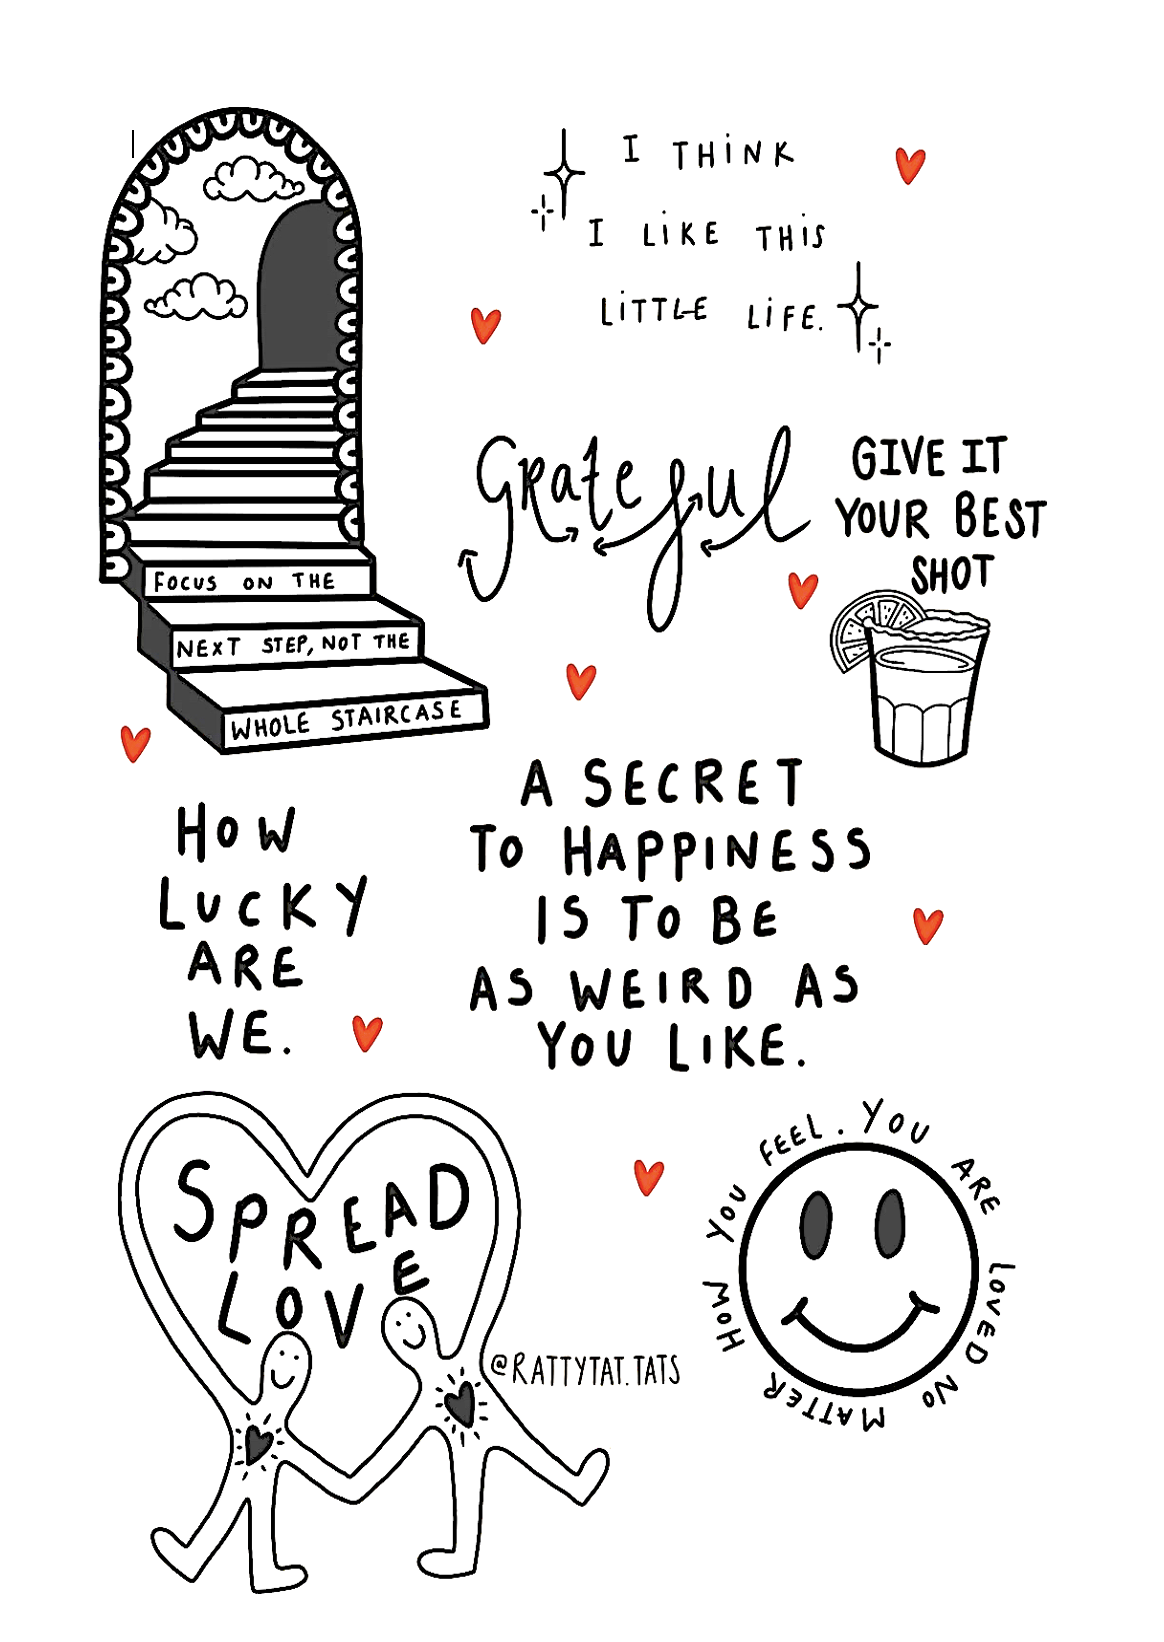 I THiNK
I LiKE THiS
LiTTLE LiFE.
Grateful
GIVE IT
YOUR BEST
SHOT
FOCUS ON THE
NEXT STEP, NOT THE
WHOLE STAIRCASE
HOW
LUCKY
ARE
WE.
A SECRET
TO HAPPINESS
IS TO BE
AS WEIRD AS
YOU LIKE.
SPREAD
LOVE
@RATTYTAT.TATS
YOU ARE LOVED NO MATTER HOW YOU FEEL.